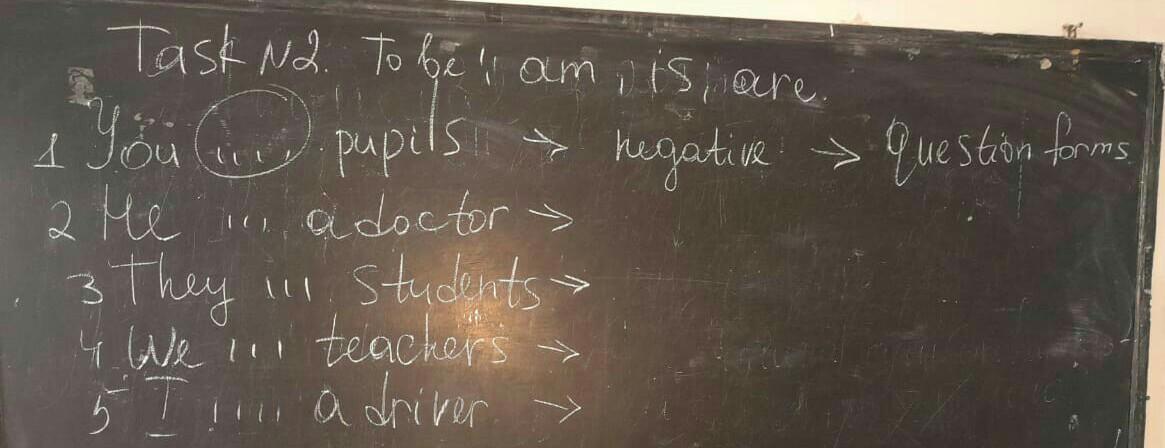 Task N2. To be; am, is, are.
1 You .... pupils → negative → Question forms
2 He .... a doctor →
3 They .... students →
4 We ... teachers →
5 I .... a driver →